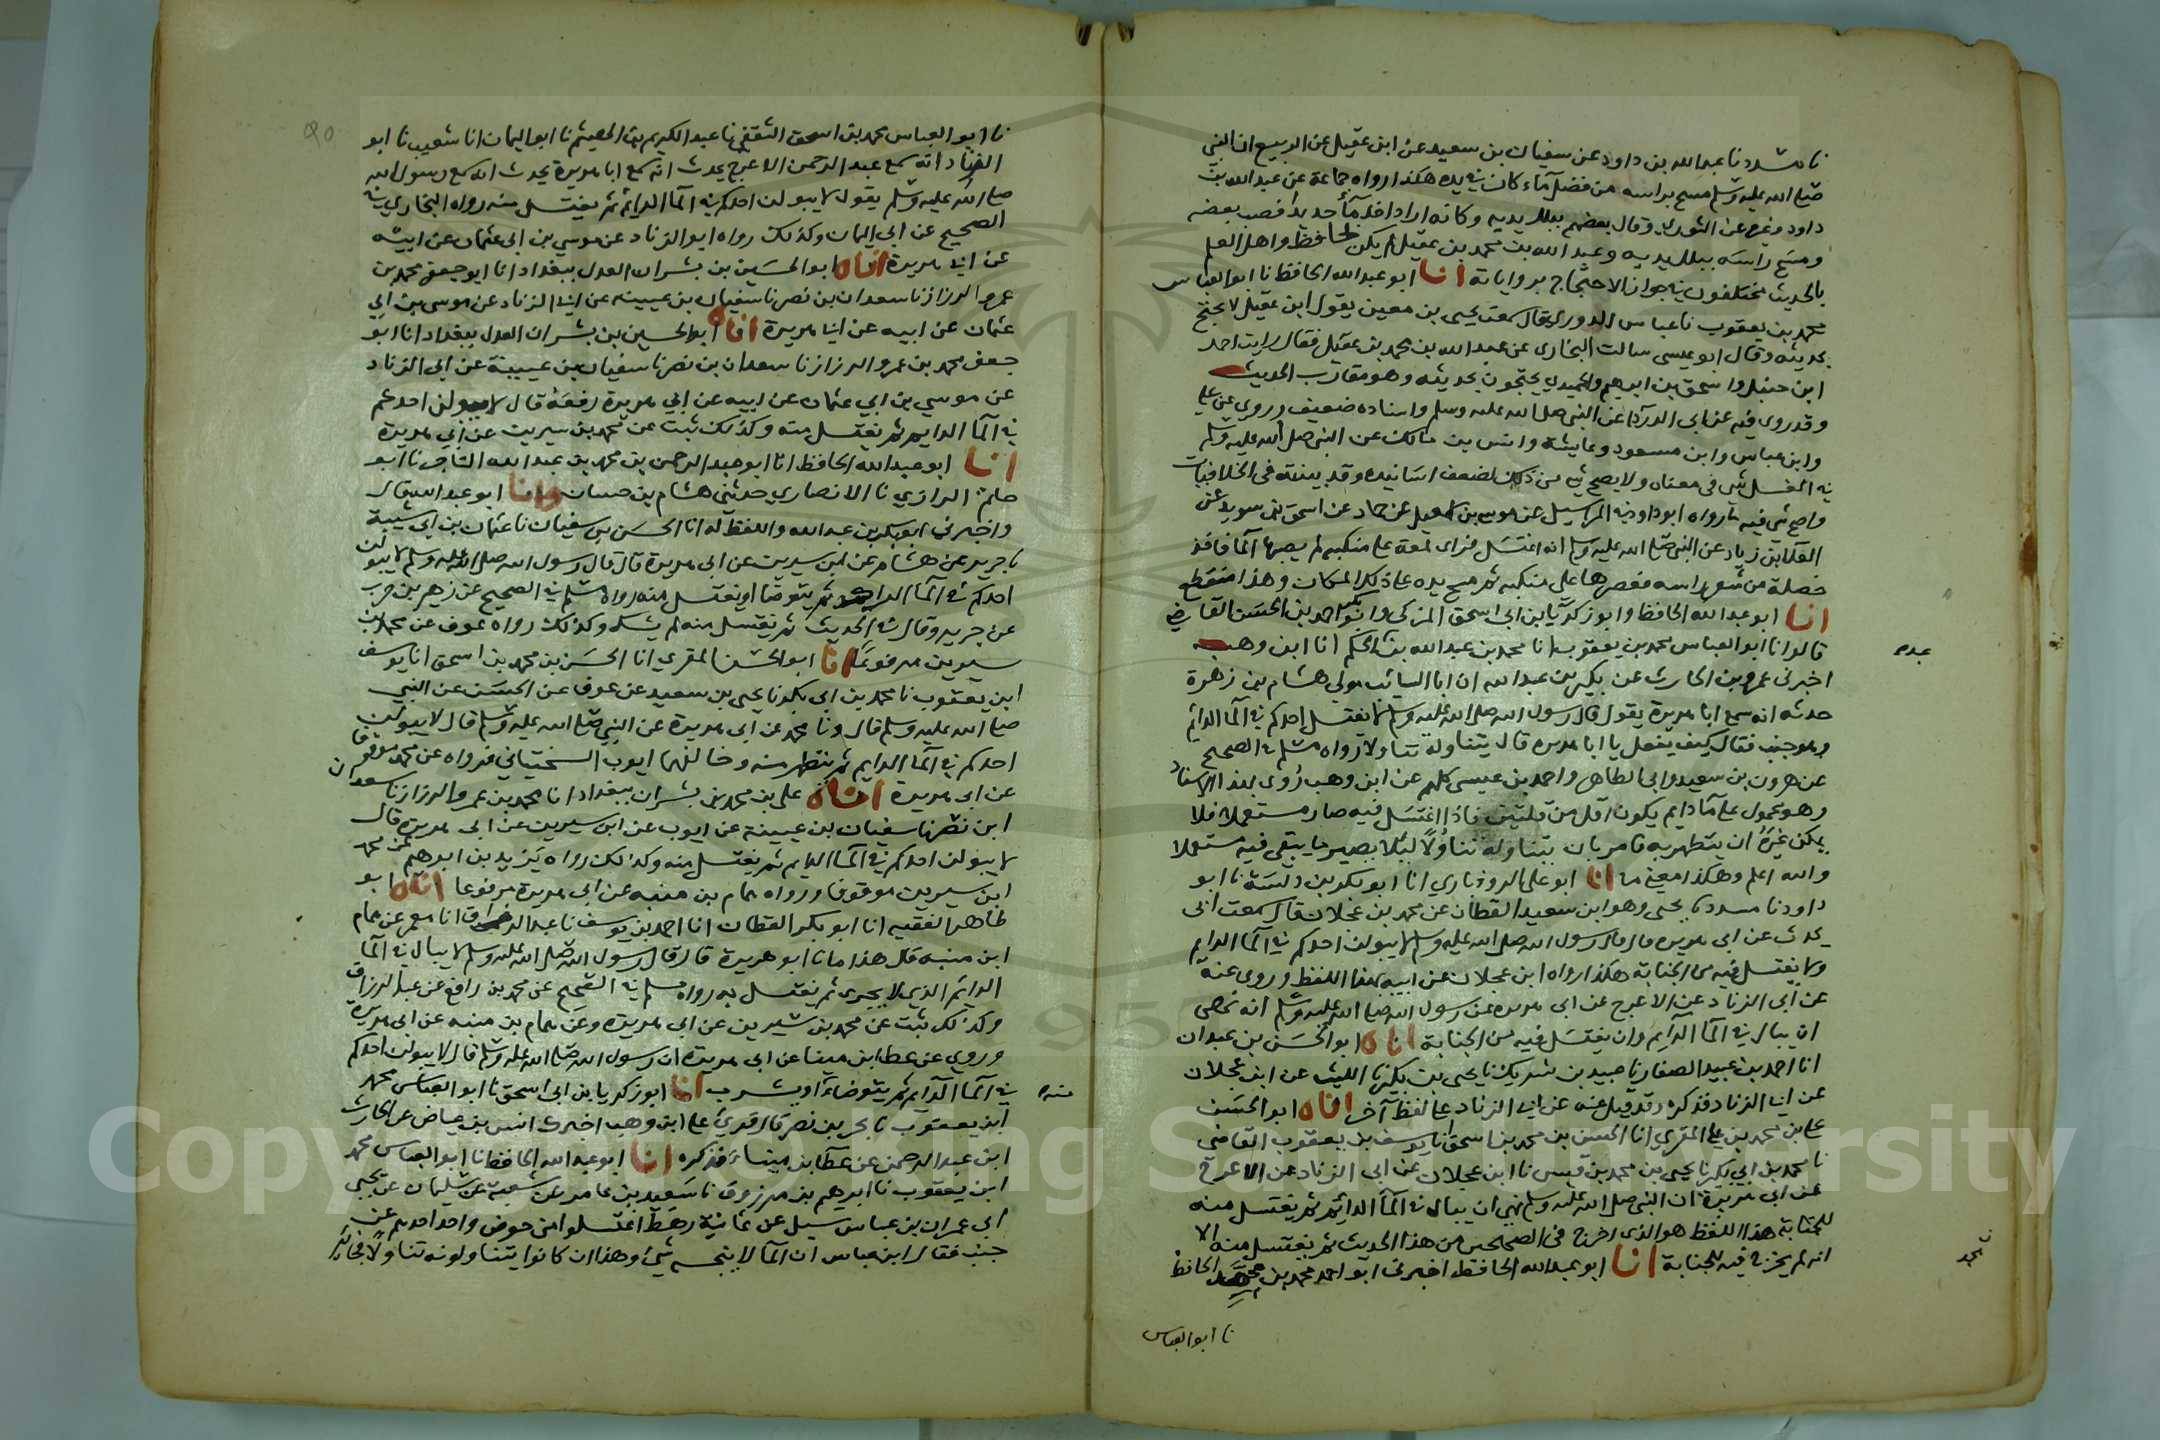 نا مسدد نا عبد الله بن داود عن سفيان بن سعيد عن ابن عقيل عن الربيع ان النبي
صلى الله عليه وسلم مسح براسه من فضل ماء كان في يده هكذا رواه جماعة عن عبد الله بن
داود وغيره عن الثوري وقال بعضهم ببلل يديه وكانه اراد اخذ ماء جديدا فصب بعضه
ومسح راسه ببلل يديه وعبد الله بن محمد بن عقيل لم يكن بالحافظ واهل العلم
بالحديث مختلفون في جواز الاحتجاج برواياته انا ابو عبد الله الحافظ نا ابو العباس
محمد بن يعقوب نا عباس الدوري قال سمعت يحيى بن معين يقول ابن عقيل لا يحتج
بحديثه وقال ابو عيسى سالت البخاري عن عبد الله بن محمد بن عقيل فقال رايت احمد
ابن حنبل واسحق بن ابراهيم والحميدي يحتجون بحديثه وهو مقارب الحديث
وقد روى فيه عن ابي الدرداء عن النبي صلى الله عليه وسلم واسناده ضعيف وروي عن علي
وابن عباس وابن مسعود وعايشة وانس بن مالك عن النبي صلى الله عليه وسلم
في الغسل شي في معناه ولا يصح شي من ذلك لضعف اسانيده وقد بينته في الخلافيات
واصح شي فيه ما رواه ابو داود في المراسيل عن موسى بن اسمعيل عن حماد عن اسحق بن سويد عن
العلا بن زياد عن النبي صلى الله عليه وسلم انه اغتسل فراى لمعة على منكبه لم يصبها الما فاخذ
خصلة من شعر راسه فعصرها على منكبه ثم مسح يده على ذلك المكان وهذا منقطع
انا ابو عبد الله الحافظ وابو زكريا بن ابي اسحق المزكي وابو بكر احمد بن الحسن القاضي
قالوا نا ابو العباس محمد بن يعقوب انا محمد بن عبد الله بن عبد الحكم انا ابن وهب
اخبرني عمرو بن الحارث عن بكير بن عبد الله ان ابا السائب مولى هشام بن زهرة
حدثه انه سمع ابا هريرة يقول قال رسول الله صلى الله عليه وسلم لا يغتسل احدكم في الما الدايم
وهو جنب فقال كيف يفعل يا ابا هريره قال يتناوله تناولا رواه مسلم في الصحيح
عن هرون بن سعيد وابي الطاهر واحمد بن عيسى كلهم عن ابن وهب روى بهذا الاسناد
وهو محمول على ماء دايم يكون اقل من قلتين فاذا اغتسل فيه صار مستعملا فلا
يمكن غيره ان يتطهر به فامر بان يتناوله تناولا ليلا يصير ما يبقى فيه مستعملا
والله اعلم وهكذا معنى ما انا ابو علي الروذباري انا ابو بكر بن داسة نا ابو
داود نا مسدد نا يحيى وهو ابن سعيد القطان عن محمد بن عجلان قال سمعت ابي
يحدث عن ابي هريره قال قال رسول الله صلى الله عليه وسلم لا يبولن احدكم في الما الدايم
ولا يغتسل فيه من الجنابة هكذا رواه ابن عجلان عن ابيه بهذا اللفظ وروى عنه
عن ابي الزناد عن الاعرج عن ابي هريره عن رسول الله صلى الله عليه وسلم انه نهى
ان يبال في الما الدايم وان يغتسل فيه من الجنابة اناه ابو الحسن بن عبدان
انا احمد بن عبيد الصفار نا عبيد بن شريك نا يحيى بن بكير نا الليث عن ابن عجلان
عن ابي الزناد فذكره وقد قيل عنه عن ابي الزناد على لفظ آخر اناه ابو الحسن
علي بن محمد بن علي المقري انا الحسن بن محمد بن اسحق نا يوسف بن يعقوب القاضي
نا محمد بن ابي بكر نا يحيى بن محمد بن قيس نا ابن عجلان عن ابي الزناد عن الاعرج
عن ابي هريرة ان النبي صلى الله عليه وسلم نهى ان يبال في الما الدايم ثم يغتسل منه
للجنابة هذا اللفظ هو الذي اخرج في الصحيحين من هذا الحديث ثم يغتسل منه الا
انه لم يخرج فيه للجنابة انا ابو عبد الله الحافظ اخبرني ابو احمد محمد بن محمد الحافظ
نا ابو العباس
عبد صح
نا ابو العباس محمد بن اسحق الثقفي نا عبد الكريم بن الهيثم نا ابو اليمان انا شعيب نا ابو
الزناد انه سمع عبد الرحمن الاعرج يحدث انه سمع ابا هريرة يحدث انه سمع رسول الله
صلى الله عليه وسلم يقول لا يبولن احدكم في الما الدائم ثم يغتسل منه رواه البخاري في
الصحيح عن ابي اليمان وكذلك رواه ابو الزناد عن موسى بن ابي عثمان عن ابيه
عن ابي هريرة اناه ابو الحسين بن بشران العدل ببغداد انا ابو جعفر محمد بن
عمرو الرزاز نا سعدان بن نصر نا سفيان بن عيينه عن ابي الزناد عن موسى بن ابي
عثمان عن ابيه عن ابي هريرة اناه ابو الحسين بن بشران العدل ببغداد انا ابو
جعفر محمد بن عمرو الرزاز نا سعدان بن نصر نا سفيان بن عيينة عن ابي الزناد
عن موسى بن ابي عثمان عن ابيه عن ابي هريرة رفعه قال لا يبولن احدكم
في الما الدايم ثم يغتسل منه وكذلك ثبت عن محمد بن سيرين عن ابي هريرة
انا ابو عبد الله الحافظ انا ابو عبد الرحمن بن محمد بن عبد الله التاجر نا ابو
حاتم الرازي نا الانصاري حدثني هشام بن حسان وانا ابو عبد الله قال
واخبرني ابو بكر بن عبد الله واللفظ له انا الحسن بن سفيان نا عثمان بن ابي شيبة
نا جرير عن هشام عن ابن سيرين عن ابي هريرة قال قال رسول الله صلى الله عليه وسلم لا يبولن
احدكم في الما الدايم ثم يتوضا او يغتسل منه رواه مسلم في الصحيح عن زهير بن حرب
عن جرير وقال في الحديث ثم يغتسل منه لم يشك وكذلك رواه عوف عن محمد بن
سيرين مرفوعا انا ابو الحسن المقري انا الحسن بن محمد بن اسحق انا يوسف
ابن يعقوب نا محمد بن ابي بكر نا يحيى بن سعيد عن عوف عن الحسن عن النبي
صلى الله عليه وسلم قال ونا محمد عن ابي هريرة عن النبي صلى الله عليه وسلم قال لا يبولن
احدكم في الما الدايم ثم يتطهر منه وخالفهما ايوب السختياني فرواه عن محمد موقوفا
عن ابي هريرة اناه علي بن محمد بن بشران ببغداد انا محمد بن عمرو الرزاز نا سعدان
ابن نصر نا سفيان بن عيينة عن ايوب عن ابن سيرين عن ابي هريرة قال
لا يبولن احدكم في الما الدايم ثم يغتسل منه وكذلك رواه يزيد بن ابرهيم عن محمد
ابن سيرين موقوفا ورواه همام بن منبه عن ابي هريرة مرفوعا اناه ابو
طاهر الفقيه انا ابو بكر القطان انا احمد بن يوسف نا عبد الرزاق انا معمر عن همام
ابن منبه قال هذا ما نا ابو هريرة قال قال رسول الله صلى الله عليه وسلم لا يبال في الما
الدايم الذي لا يجري ثم يغتسل به رواه مسلم في الصحيح عن محمد بن رافع عن عبد الرزاق
وكذلك ثبت عن محمد بن سيرين عن ابي هريرة وعن همام بن منبه عن ابي هريرة
وروي عن عطا بن مينا عن ابي هريرة ان رسول الله صلى الله عليه وسلم قال لا يبولن احدكم
في الما الدايم ثم يتوضا منه او يشرب انا ابو زكريا بن ابي اسحق نا ابو العباس محمد
ابن يعقوب نا بحر بن نصر قال قري على ابن وهب اخبرك انس بن عياض عن الحارث
ابن عبد الرحمن عن عطا بن ميناء فذكره انا ابو عبد الله الحافظ انا ابو العباس محمد
ابن يعقوب نا ابرهيم بن مرزوق نا سعيد بن عامر عن شعبة عن سليمان عن يحيى
ابي عمر ان ابن عباس سيل عن ثمانية رهط اغتسلوا من حوض واحد احدهم
جنب فقال ابن عباس ان الما لا ينجسه شيء وهذا ان كانوا يتناولونه تناولا
منه